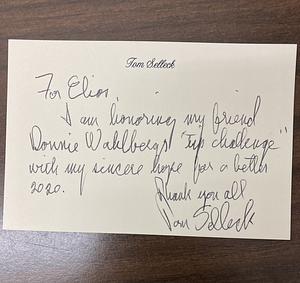 Tom Selleck
For Elios,
I am honoring my friend
Donnie Wahlbergs "tip challenge"
with my sincere hope for a better
2020.
Thank you all
Tom Selleck